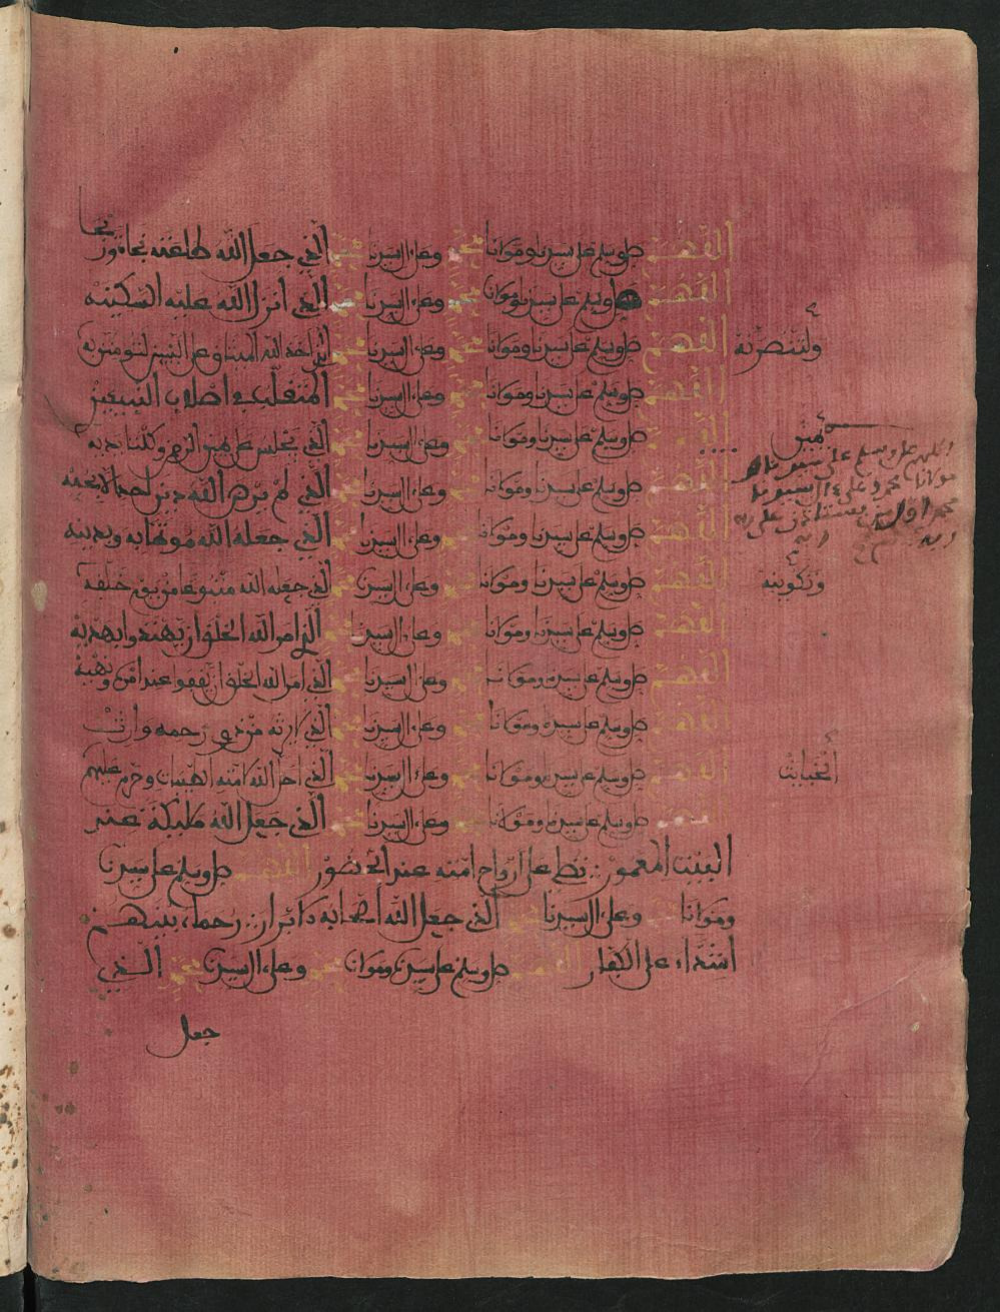 اللهم صل وسلم على سيدنا ومولانا محمد وعلى ءال سيدنا محمد الذي جعل الله طاعته نجا
اللهم صل وسلم على سيدنا ومولانا محمد وعلى ءال سيدنا محمد الذي أنزل الله عليه السكينة
اللهم صل وسلم على سيدنا ومولانا محمد وعلى ءال سيدنا محمد الذي أخذ الله الميثاق على النبيين لتومنن به
ولتنصرنه
اللهم صل وسلم على سيدنا ومولانا محمد وعلى ءال سيدنا محمد المتقلب في أصلاب النبيين
اللهم صل وسلم على سيدنا ومولانا محمد وعلى ءال سيدنا محمد الذي يجلس على يمين الرحمن وكلتا يديه
يمين
اللهم صل وسلم على سيدنا
مولانا محمد وعلى ءال سيدنا
محمد
اللهم صل وسلم على سيدنا ومولانا محمد وعلى ءال سيدنا محمد الذي لم يرض الله دين أحد
اللهم صل وسلم على سيدنا ومولانا محمد وعلى ءال سيدنا محمد الذي جعله الله موتمنا به وبدينه
اللهم صل وسلم على سيدنا ومولانا محمد وعلى ءال سيدنا محمد الذي جعله الله متبوعا من بين خلقه
وتكوينه
اللهم صل وسلم على سيدنا ومولانا محمد وعلى ءال سيدنا محمد الذي أمر الله الخلق أن يهتدوا بهديه
اللهم صل وسلم على سيدنا ومولانا محمد وعلى ءال سيدنا محمد الذي أمر الله الخلق أن يقفوا عند أمره ونهيه
اللهم صل وسلم على سيدنا ومولانا محمد وعلى ءال سيدنا محمد الذي رحمه
اللهم صل وسلم على سيدنا ومولانا محمد وعلى ءال سيدنا محمد الذي أحل الله لأمته الطيبات وحرم عليهم
الخبائث
اللهم صل وسلم على سيدنا ومولانا محمد وعلى ءال سيدنا محمد الذي جعل الله ملائكة عند
البيت المعمور تصلي على أرواح أمته عند الحضور اللهم صل وسلم على سيدنا
ومولانا محمد وعلى ءال سيدنا محمد الذي جعل الله أصحابه رحماء بينهم
أشداء على الكفار اللهم صل وسلم على سيدنا ومولانا محمد وعلى ءال سيدنا محمد الذي
جعل